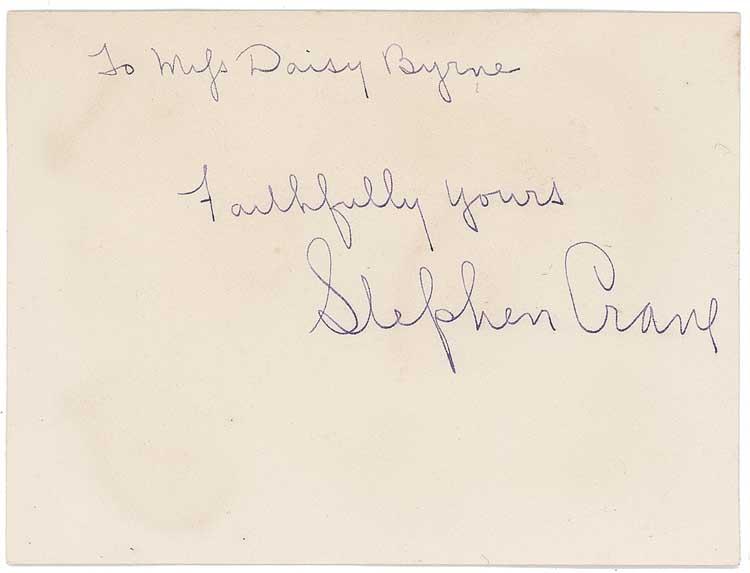 To Miss Daisy Byrne
Faithfully yours
Stephen Crane